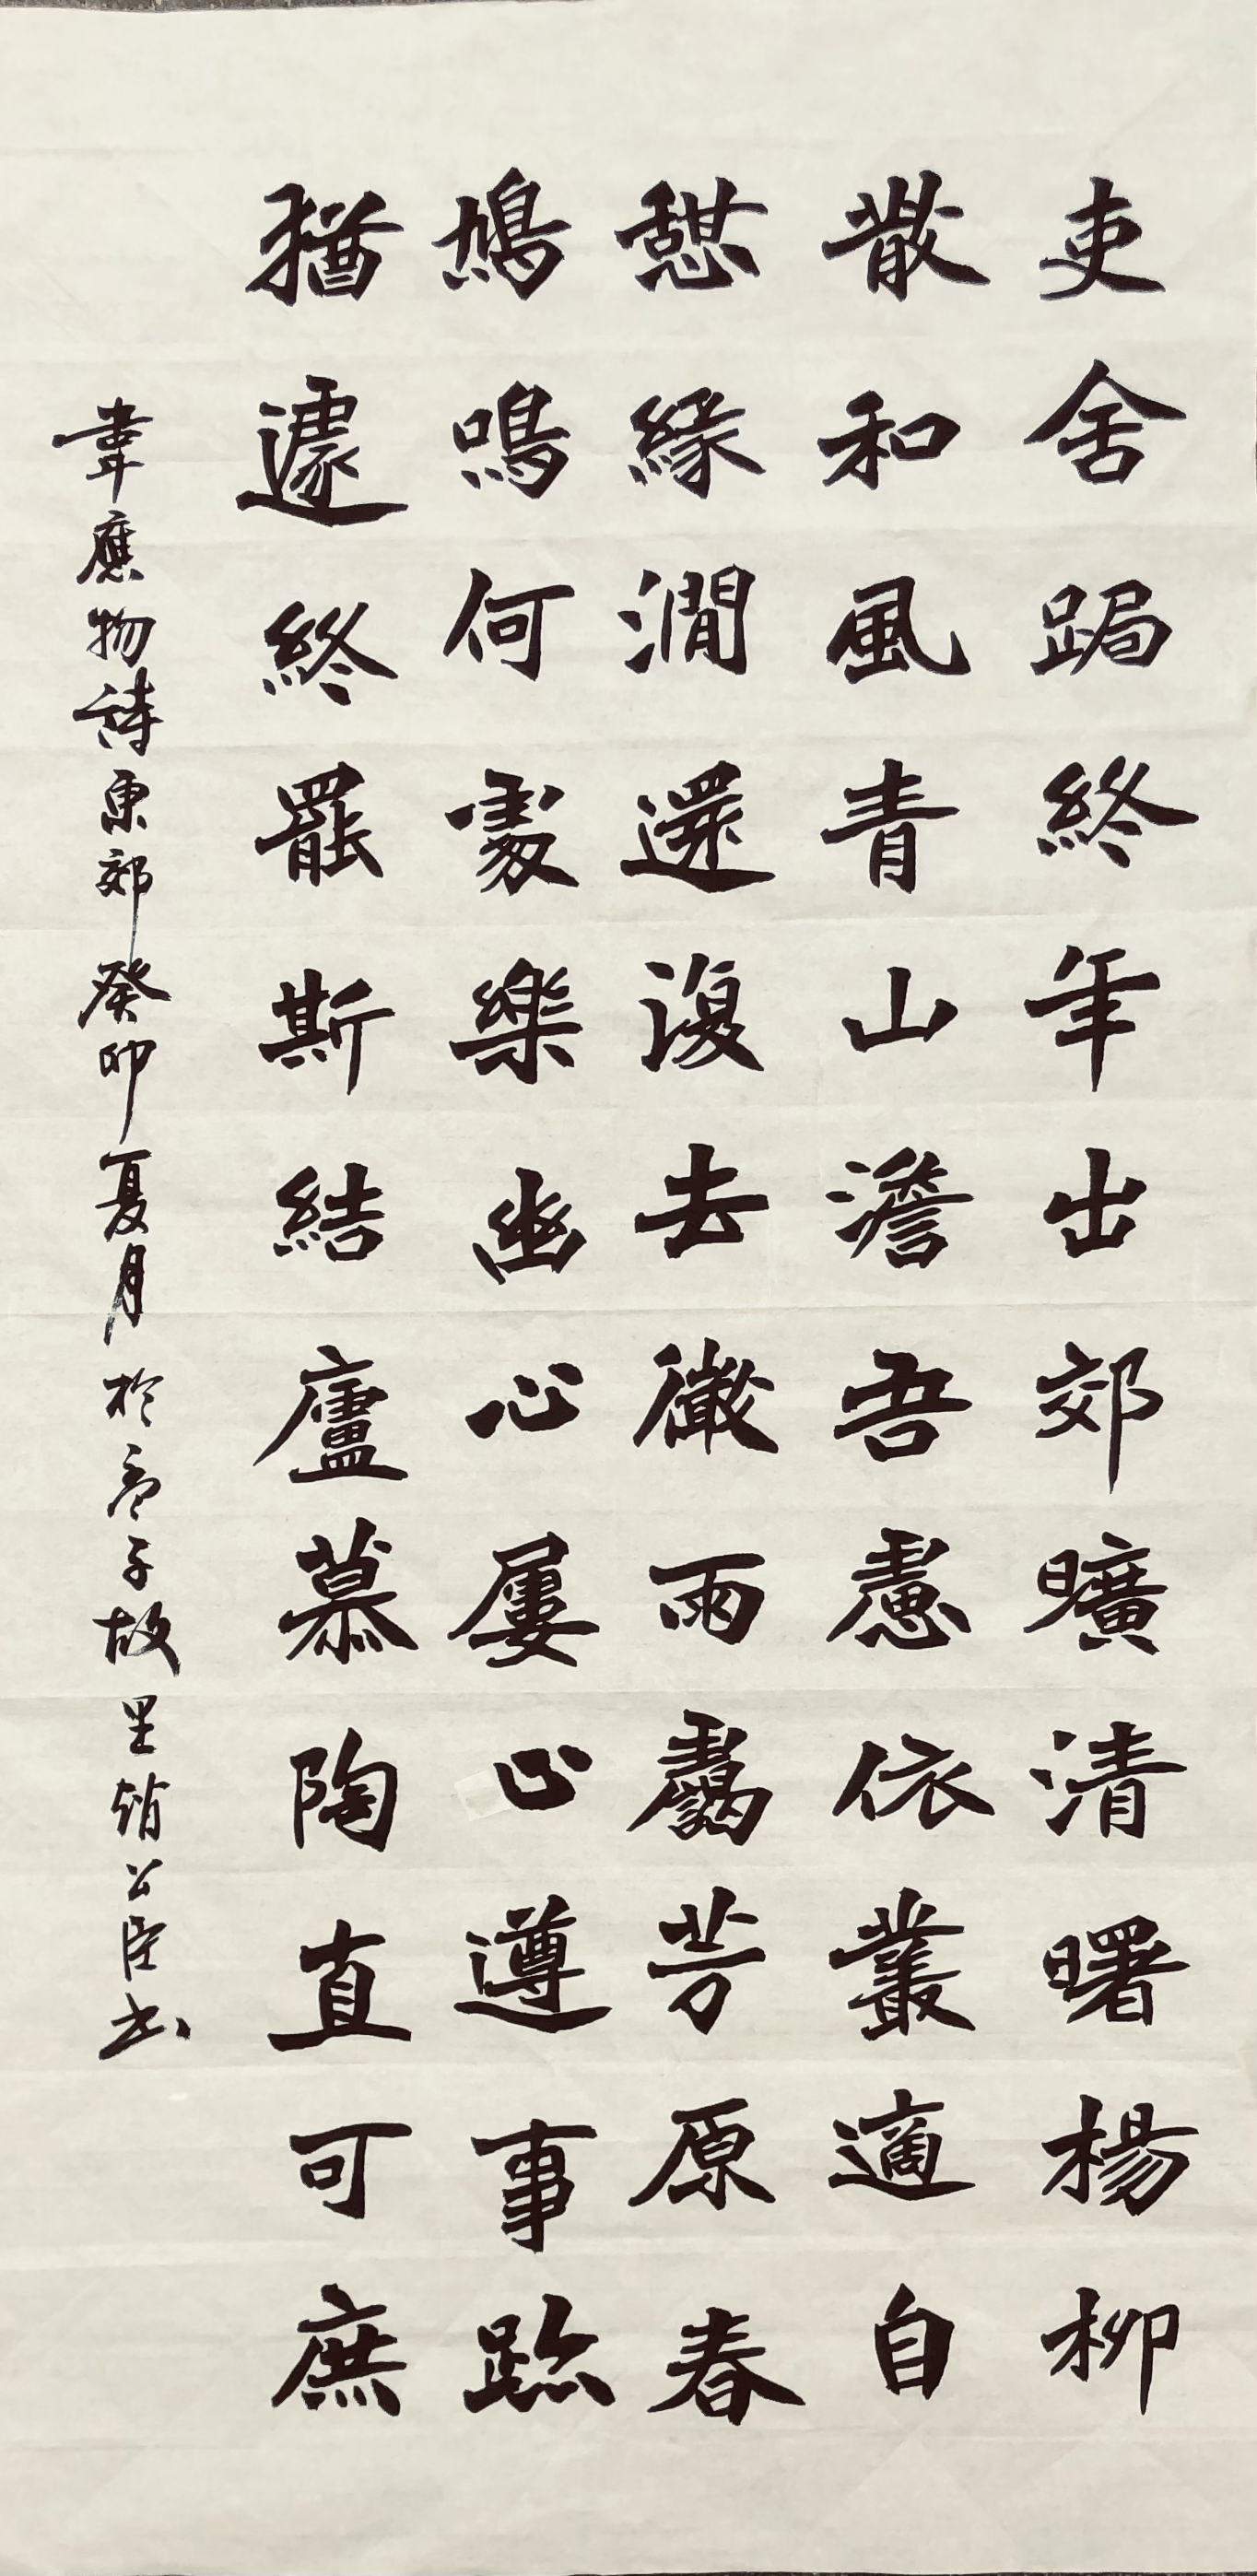 吏舍跼終年出郊曠清曙楊柳
散和風青山澹吾慮依叢適自
憇緣澗還復去微雨靄芳原春
鳩鳴何處樂幽心屢止遵事跡
猶遽終罷斯結廬慕陶直可庶
韋應物詩東郊癸卯夏月於孟子故里趙公臣书